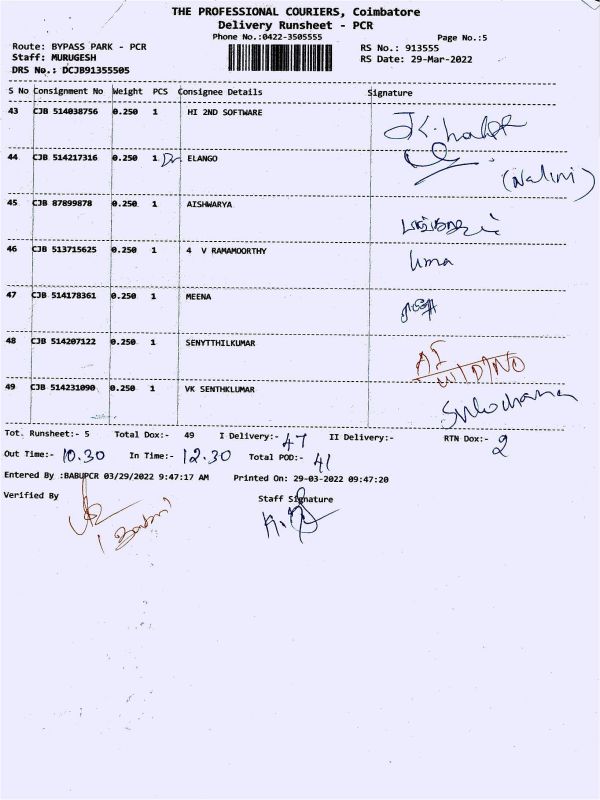 THE PROFESSIONAL COURIERS, Coimbatore
Delivery Runsheet - PCR
Phone No.:0422-3505555 Page No.:5
Route: BYPASS PARK - PCR RS No.: 913555
Staff: MURUGESH RS Date: 29-Mar-2022
DRS No.: DCJB91355505
S No Consignment No Weight PCS Consignee Details Signature
43 CJB 514038756 0.250 1 HI 2ND SOFTWARE
44 CJB 514217316 0.250 1 Dr. ELANGO
(Nalini)
45 CJB 87899878 0.250 1 AISHWARYA
46 CJB 513715625 0.250 1 4 V RAMAMOORTHY Uma
47 CJB 514178361 0.250 1 MEENA
48 CJB 514207122 0.250 1 SENYTTHILKUMAR
49 CJB 514231090 0.250 1 VK SENTHKLUMAR Sulochana
Tot. Runsheet:- 5 Total Dox:- 49 I Delivery:- 47 II Delivery:- RTN Dox:- 2
Out Time:- 10.30 In Time:- 12.30 Total POD:- 41
Entered By :BABUPCR 03/29/2022 9:47:17 AM Printed On: 29-03-2022 09:47:20
Verified By Staff Signature